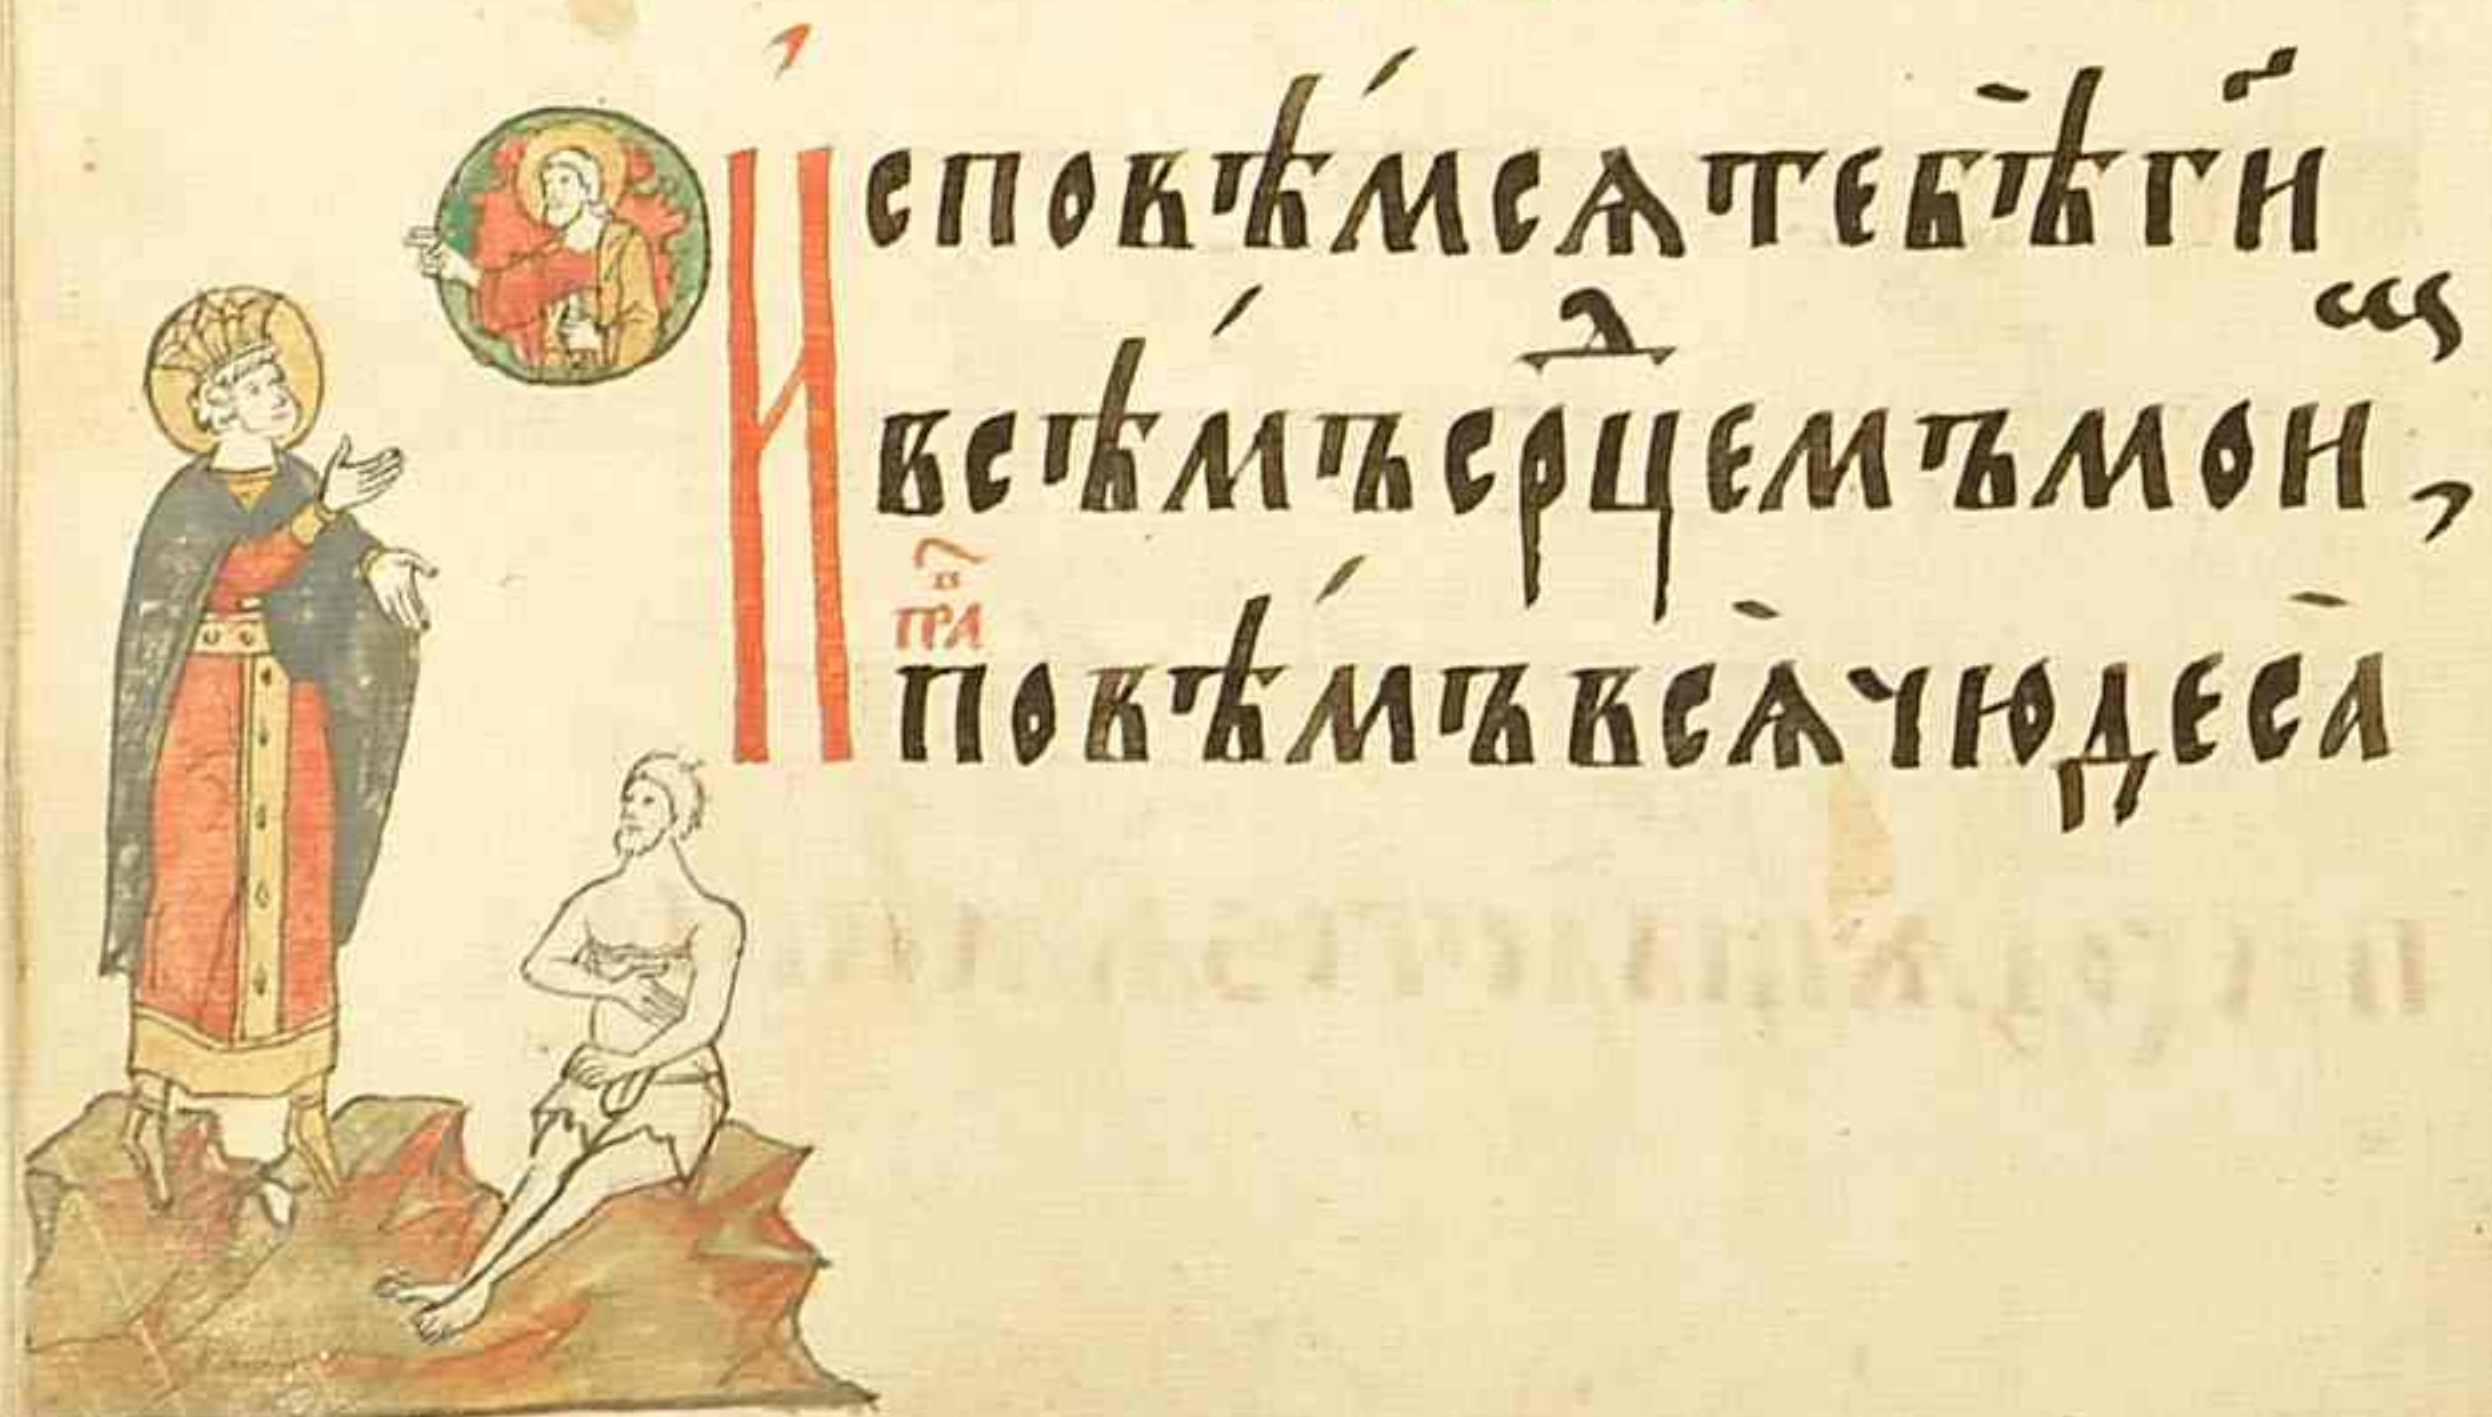 И́споквѣ́мсѧтебѣ̀гй
всѣ́мъсрⷣцемъмои,
пра
повѣ́мъвсѧ̀чюдеса̀